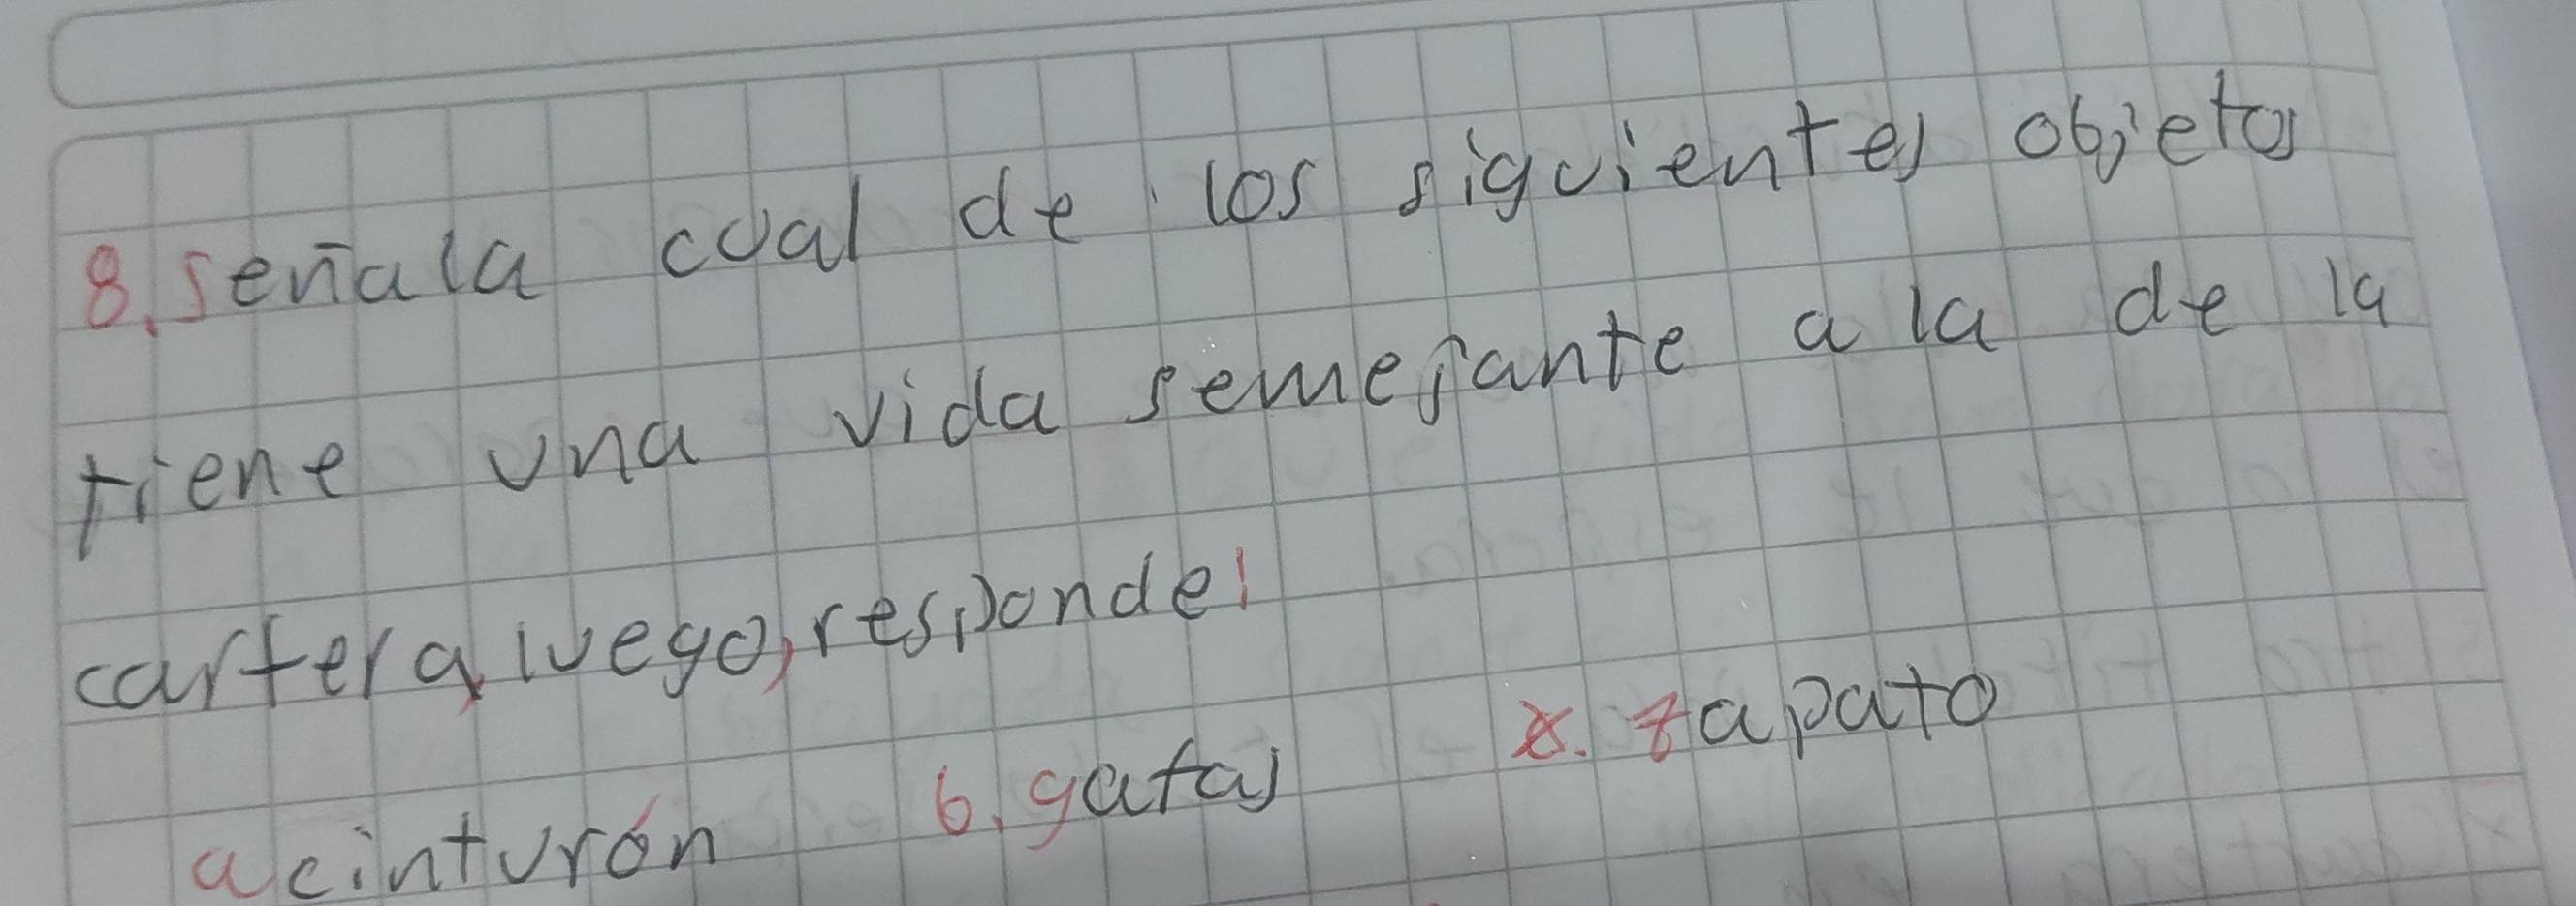 8. señala cual de los siguientes objetos
tiene una vida semejante a la de la
cartera, luego, responde:
a cinturón 6. gafas x. zapato